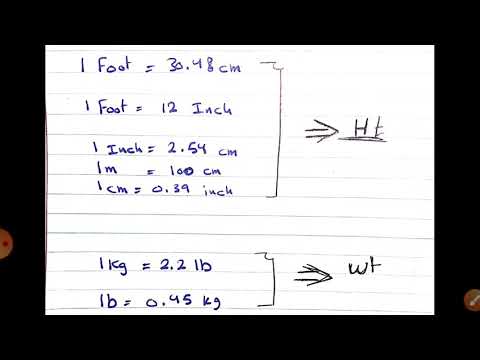 1 Foot = 30.48 cm
1 Foot = 12 Inch
1 Inch = 2.54 cm
1m = 100 cm
1cm = 0.39 inch
⇒ Ht
1kg = 2.2 lb
1b = 0.45 kg
⇒ wt